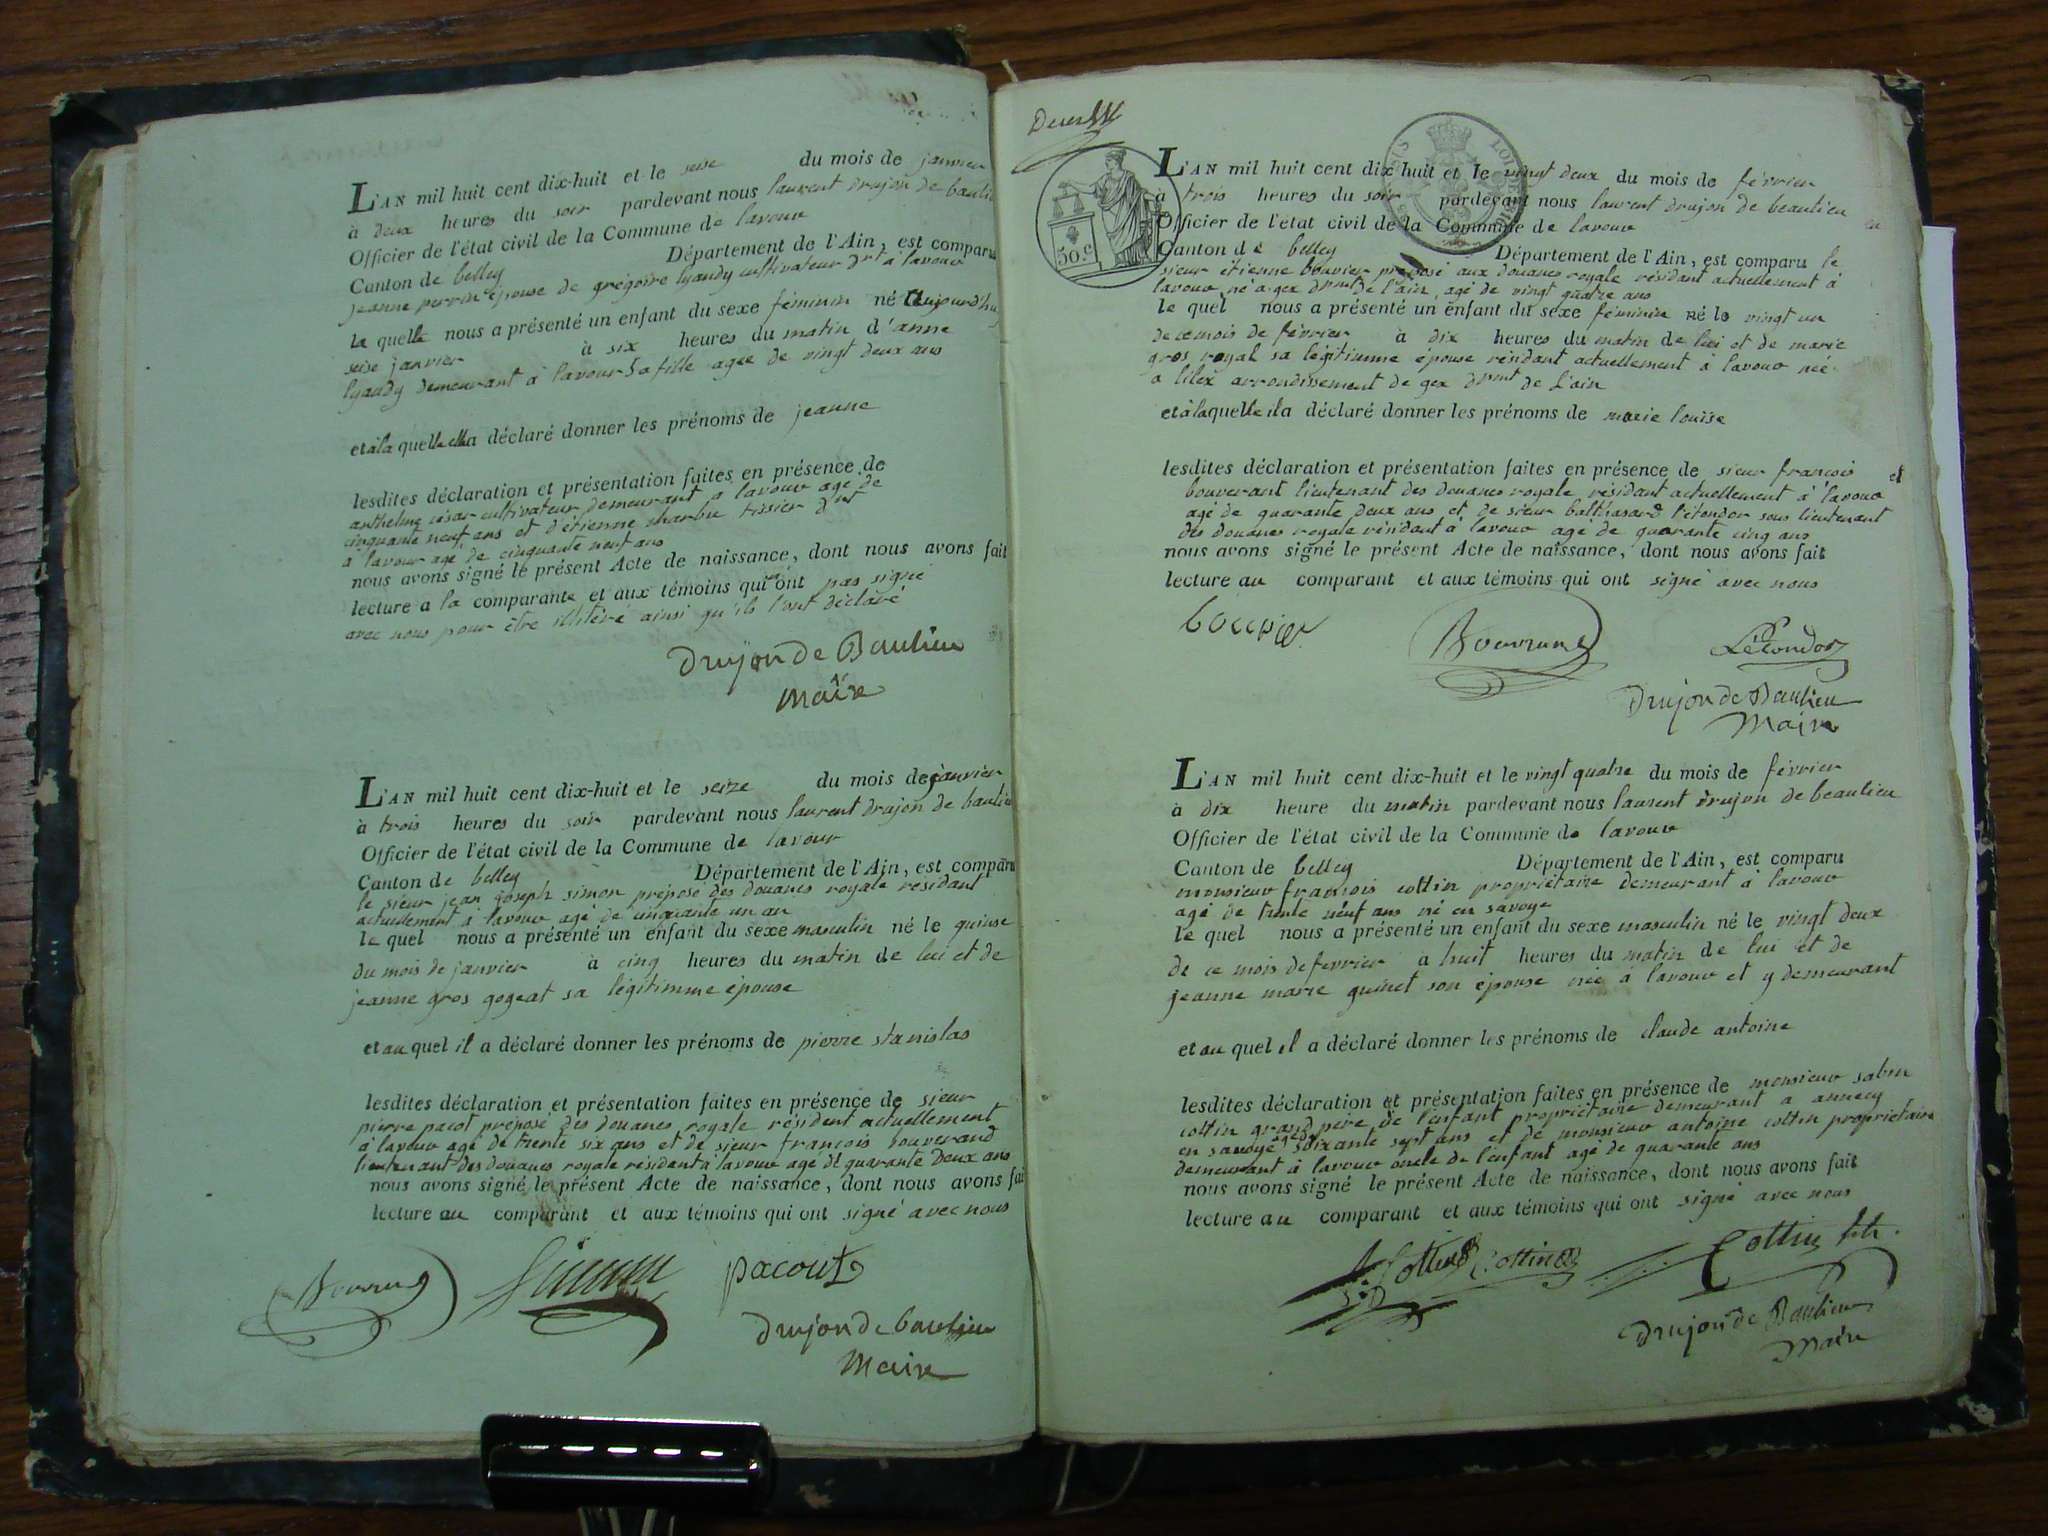 L'AN mil huit cent dix-huit et le seise du mois de janvier
à deux heures du soir pardevant nous laurent drujon de baulieu
Officier de l'état civil de la Commune de lavour
Canton de belley Département de l'Ain, est comparu
jeanne perrin épouse de grégoire lyaudy cultivateur drt à lavour
la quelle nous a présenté un enfant du sexe féminin né aujourd'huy
seise janvier à six heures du matin d'anne
lyaudy demeurant à lavour sa fille agée de vingt deux ans
et à la quelle ella déclaré donner les prénoms de jeanne
lesdites déclaration et présentation faites en présence de
anthelme césar cultivateur demeurant a lavour agé de
cinquante neuf ans et d'étienne charbu tissier drt
a lavour agé de cinquante neuf ans
nous avons signé le présent Acte de naissance, dont nous avons fait
lecture a la comparante et aux témoins qui ont pas signé
avec nous pour être illitéré ainsi qu'ils l'ont déclaré
Drujon de Baulieu
Maire
L'AN mil huit cent dix-huit et le seize du mois de janvier
à trois heures du soir pardevant nous laurent drujon de baulieu
Officier de l'état civil de la Commune de lavour
Canton de belley Département de l'Ain, est comparu
le sieur jean joseph simon préposé des douanes royale résidant
actuellement à lavour agé de cinquante un an
le quel nous a présenté un enfant du sexe masculin né le quinse
du mois de janvier à cinq heures du matin de lui et de
jeanne gros gogeat sa légitimme épouse
et au quel il a déclaré donner les prénoms de pierre stanislas
lesdites déclaration et présentation faites en présence de sieur
pierre pacot préposé des douanes royale résident actuellement
à lavour agé de trente six ans et de sieur françois bouverand
lieutenant des douanes royale résident à lavour agé de quarante Deux ans
nous avons signé le présent Acte de naissance, dont nous avons fai
lecture au comparant et aux témoins qui ont signé avec nous
Simon pacout
Drujon de baulieu
Maire
50 c.
L'AN mil huit cent dix-huit et le vingt deux du mois de février
à trois heures du soir pardevant nous laurent drujon de beaulieu
Officier de l'état civil de la Commune de lavour
Canton de belley Département de l'Ain, est comparu le
sieur étienne bouvier préposé aux douanes royale résidant actuellement à
lavour né a gex dpment de l'ain, agé de vingt quatre ans
le quel nous a présenté un enfant du sexe féminin né le vingt un
de ce mois de février à dix heures du matin de lui et de marie
gros royal sa légitimme épouse résidant actuellement à lavour née
a lilex arrondissement de gex dpment de l'ain
et à laquelle il a déclaré donner les prénoms de marie louise
lesdites déclaration et présentation faites en présence de sieur françois
bouverant lieutenant des douanes royale résidant actuellement à lavour et
agé de quarante deux ans et de sieur balthasard létondor sous lieutenant
des douanes royale résidant à lavour agé de quarante cinq ans
nous avons signé le présent Acte de naissance, dont nous avons fait
lecture au comparant et aux témoins qui ont signé avec nous
bouvier Bouverand Létondor
Drujon de Baulieu
Maire
L'AN mil huit cent dix-huit et le vingt quatre du mois de février
à dix heure du matin pardevant nous laurent drujon de beaulieu
Officier de l'état civil de la Commune de lavour
Canton de belley Département de l'Ain, est comparu
monsieur françois cottin propriétaire demeurant à lavour
agé de trente neuf ans né en savoye
le quel nous a présenté un enfant du sexe masculin né le vingt deux
de ce mois de fevrier a huit heures du matin de lui et de
jeanne marie guinet son épouse née à lavour et y demeurant
et au quel il a déclaré donner les prénoms de claude antoine
lesdites déclaration et présentation faites en présence de monsieur
cottin grand père de l'enfant propriétaire demeurant a annecy
en savoye agé de soixante sept ans et de monsieur antoine cottin propriétaire
demeurant à lavour oncle de l'enfant agé de quarante ans
nous avons signé le présent Acte de naissance, dont nous avons fait
lecture au comparant et aux témoins qui ont signé avec nous
Cottin Cottin Cottin fils.
Drujon de Baulieu
Maire